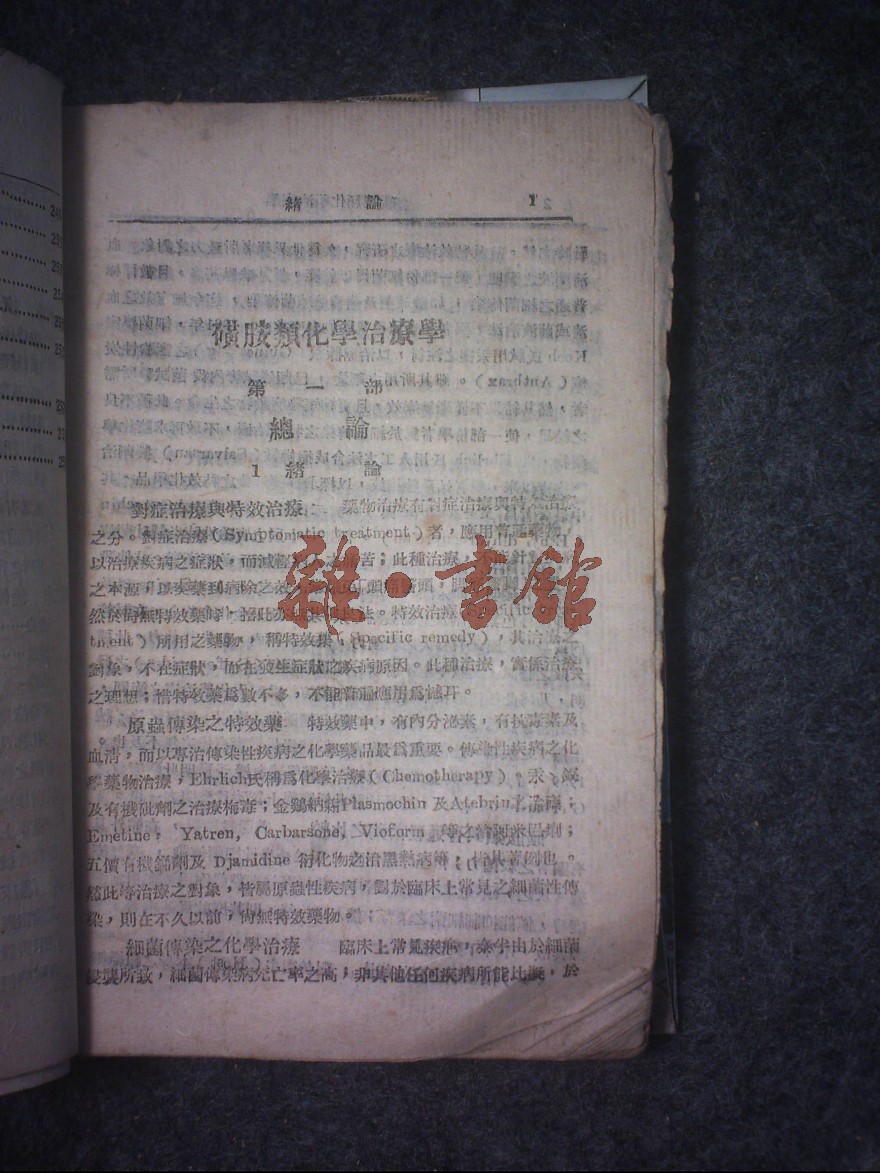 緒 論 1
磺胺類化學治療學
第 一 部
總 論
1 緒 論
對症治療與特效治療 藥物治療有對症治療與特效治療
之分。對症治療(Symptomatic treatment)者,應用普通藥物,
以治療疾病之症狀,而減輕 痛苦;此種治療,
之本源,以疾藥到病除之效 頭痛醫頭,
然於尚無特效藥時, 特效治療
tment)所用之藥物,稱特效藥(Specific remedy),其治療之
對象,不在症狀,而在發生症狀之疾病原因。此種治療,實係治療
之理想;惜特效藥爲數不多,不能普遍應用爲憾耳。
原蟲傳染之特效藥 特效藥中,有內分泌素,有抗毒素及
血清,而以專治傳染性疾病之化學藥品最爲重要。傳染性疾病之化
學藥物治療,Ehrlich氏稱爲化學治療(Chemotherapy)。汞,鉍
及有機砒劑之治療梅毒;金鷄納霜Plasmochin 及Atebrin之治瘧;
Emetine, Yatren, Carbarsone, Vioform 等之治阿米巴痢;
五價有機銻劑及 Diamidine 衍化物之治黑熱病等;皆其著例也。
然此等治療之對象,皆屬原蟲性疾病,對於臨床上常見之細菌性傳
染,則在不久以前,尚無特效藥物。
細菌傳染之化學治療 臨床上常見疾病,泰半由於細菌
侵襲所致,細菌傳染病死亡率之高,非其他任何疾病所能比擬,於
雜·書館